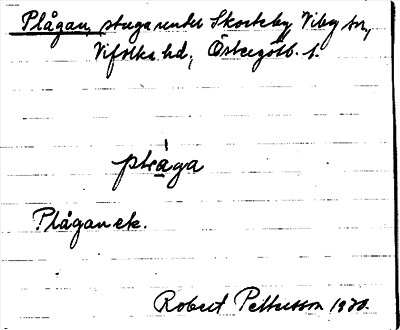 Plågan, stuga under Skorteby, Viby sn,
Vifolka hd, Östergötl. l.
plåga
Plågan ek.
Robert Pettersson